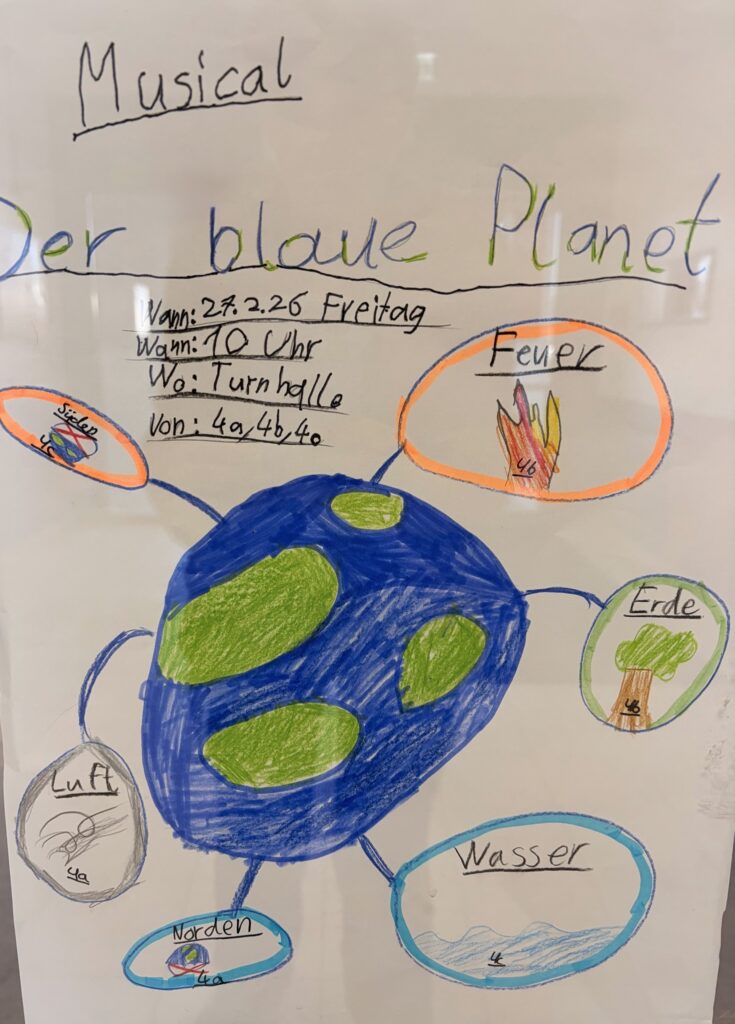 Musical
Der blaue Planet
Wann: 27.2.26 Freitag
Wann: 10 Uhr
Wo: Turnhalle
Von: 4a, 4b, 4c
Feuer
4b
Süden
4c
Erde
4b
Luft
4a
Wasser
4c
Norden
4a